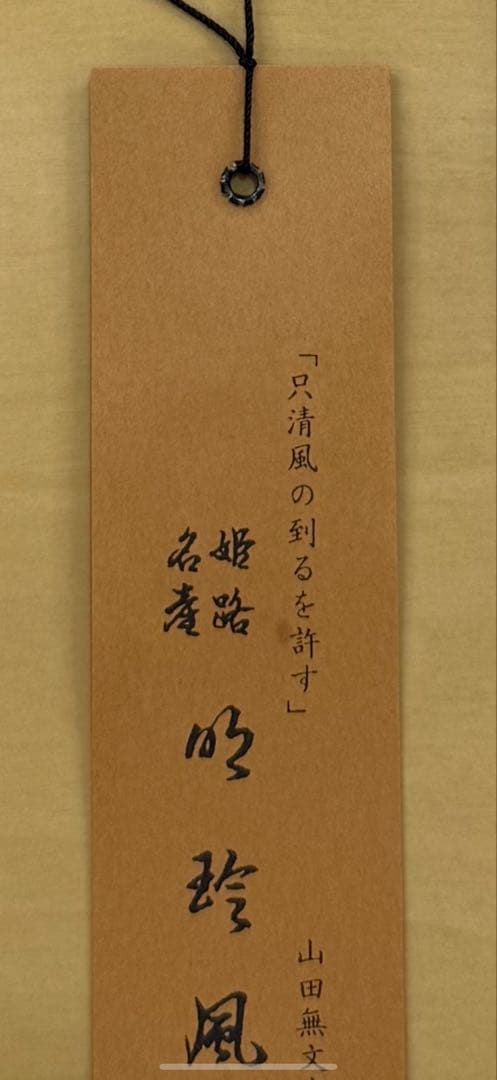 「只清風の到るを許す」
山田無文
姫路
名産
明
玲
風